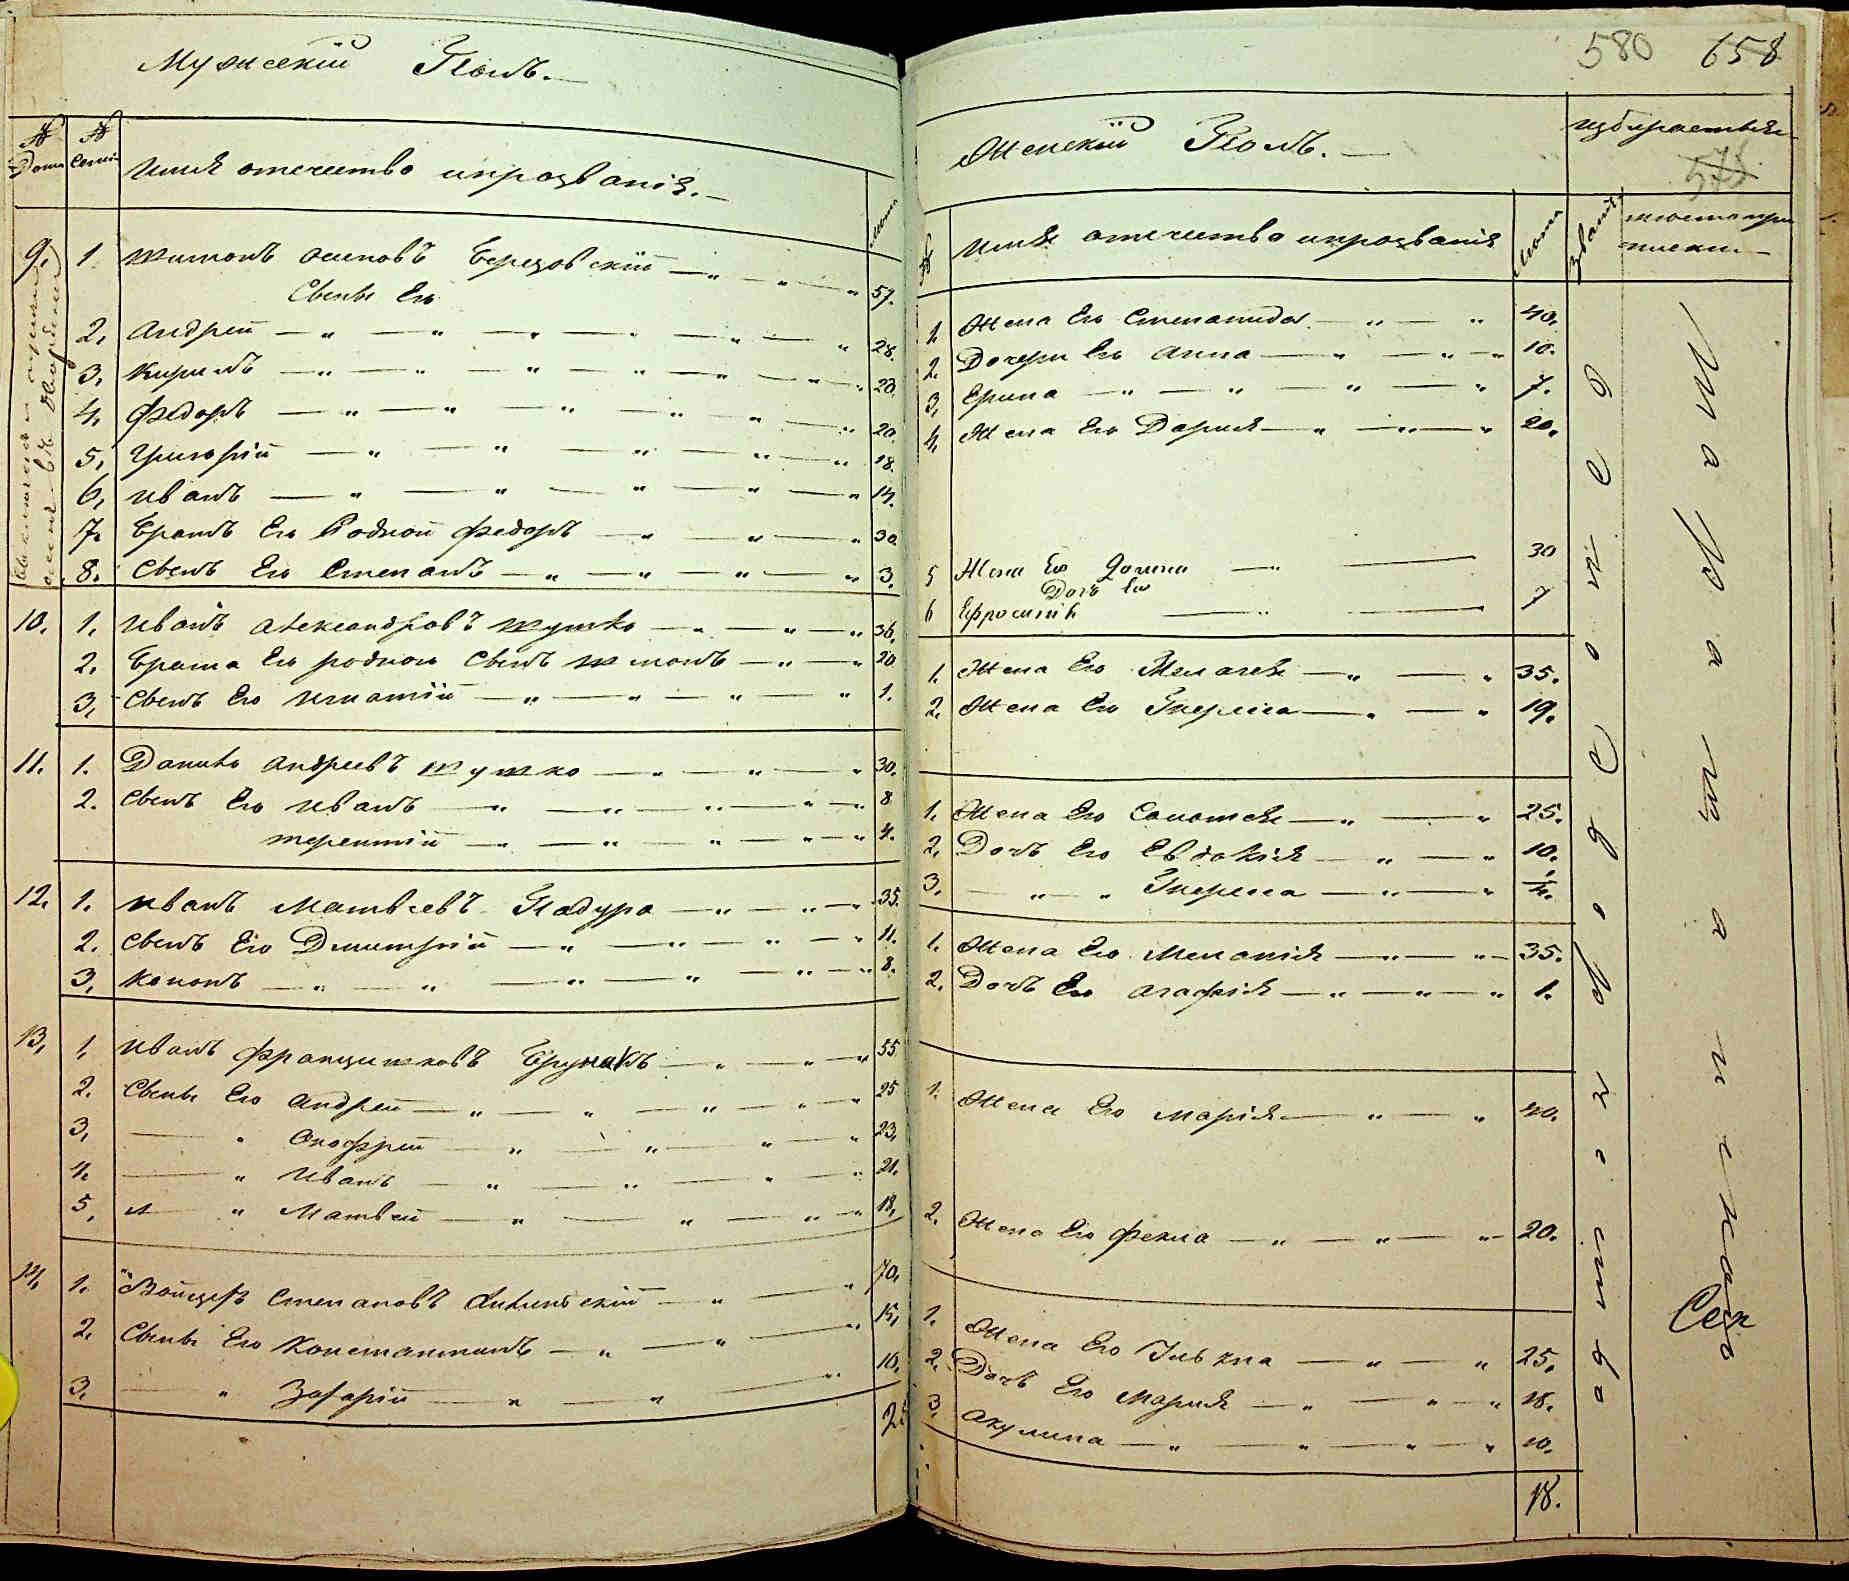 Мужескій Полъ.
№ Дома
№ Семи
Имя отечество ипрозваніе.
Лета
9.
1. Шимонъ Осиповъ Березовскій 57.
Сыны Его
2. Андрей 28.
3. Кирилъ 23.
4. Федоръ 20.
5. Григорій 18.
6. Иванъ 14.
7. Братъ Его Родной Федоръ 30
8. Сынъ Его Степанъ 3.
10. 1. Иванъ Александровъ Шушко 36.
2. Брата Его родного Сынъ Шимонъ 20
3. Сынъ Его Игнатій 1.
11. 1. Данило Андреевъ Шушко 30.
2. Сынъ Его Иванъ 8
Терентій 4.
12. 1. Иванъ Матвеевъ Падура 35.
2. Сынъ Его Дмитрій 11.
3. Кононъ 8.
13. 1. Иванъ Францишковъ 55
2. Сыны Его Андрей 25
3. Онофрей 23.
4. Иванъ 21.
5. Матвей 18.
14. 1. Войцехъ Степановъ 70.
2. Сыны Его Константинъ 15.
3. Захарій 10.
25
580 658
Женскій Полъ.
575
№
Имя отечество ипрозваніе
Лета
Званіе
1. Жена Его Степанида 40.
2. Дочери Его Анна 10.
3. Ерина 7.
4. Жена Его Дарья 20.
5 Жена Его 30
Дочь Его
6 Ефросинія 7
1. Жена Его 35.
2. Жена Его 19.
1. Жена Его Соломея 25.
2. Дочь Его Евдокія 10.
3.
1. Жена Его Меланія 35.
2. Дочь Его Агафія 1.
1. Жена Его Марія 40.
2. Жена Его Фекла 20.
1. Жена Его 25.
2. Дочь Его Марія 18.
3. Акулина 10.
18.